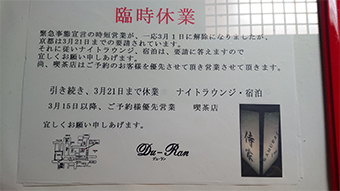 臨時休業
緊急事態宣言の時短営業が、一応3月1日に解除になりましたが、
京都は3月21日までの要請されています。
それに従いナイトラウンジ、宿泊は、要請に答えますので
宜しくお願い申しあげます。
尚、喫茶店はご予約のお客様を優先させて頂き営業させて頂きます。
引き続き、3月21日まで休業　ナイトラウンジ・宿泊
3月15日以降、ご予約様優先営業　喫茶店
宜しくお願い申しあげます。
Du-Ran
デュ・ラン